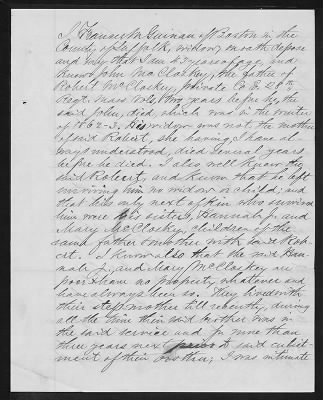 I, Honner McGuinan of Boston in the
County of Suffolk, widow, on oath depose
and say that I am 43 years of age, and
knew John McCloskey, the father of
Robert McCloskey, private Co. E. 28th
Regt. Mass. Vols, two years before he, the
said John, died, which was in the winter
of 1862-3. His widow was not the mother
of said Robert, she having, I have al-
ways understood, died several years
before he died. I also well knew the
said Robert, and know that he left
surviving him no widow or child, and
that his only next of kin who survived
him were his sisters, Hannah J. and
Mary McCloskey, children of the
same father & mother with said Rob-
ert. I know also that the said Han-
nah J. and Mary McCloskey are
poor & have no property whatever and
have always been so. They lived with
their stepmother till recently, during
all the time their said brother was in
the said service and for more than
three years next prior to said enlist-
ment of their brother; I was intimate